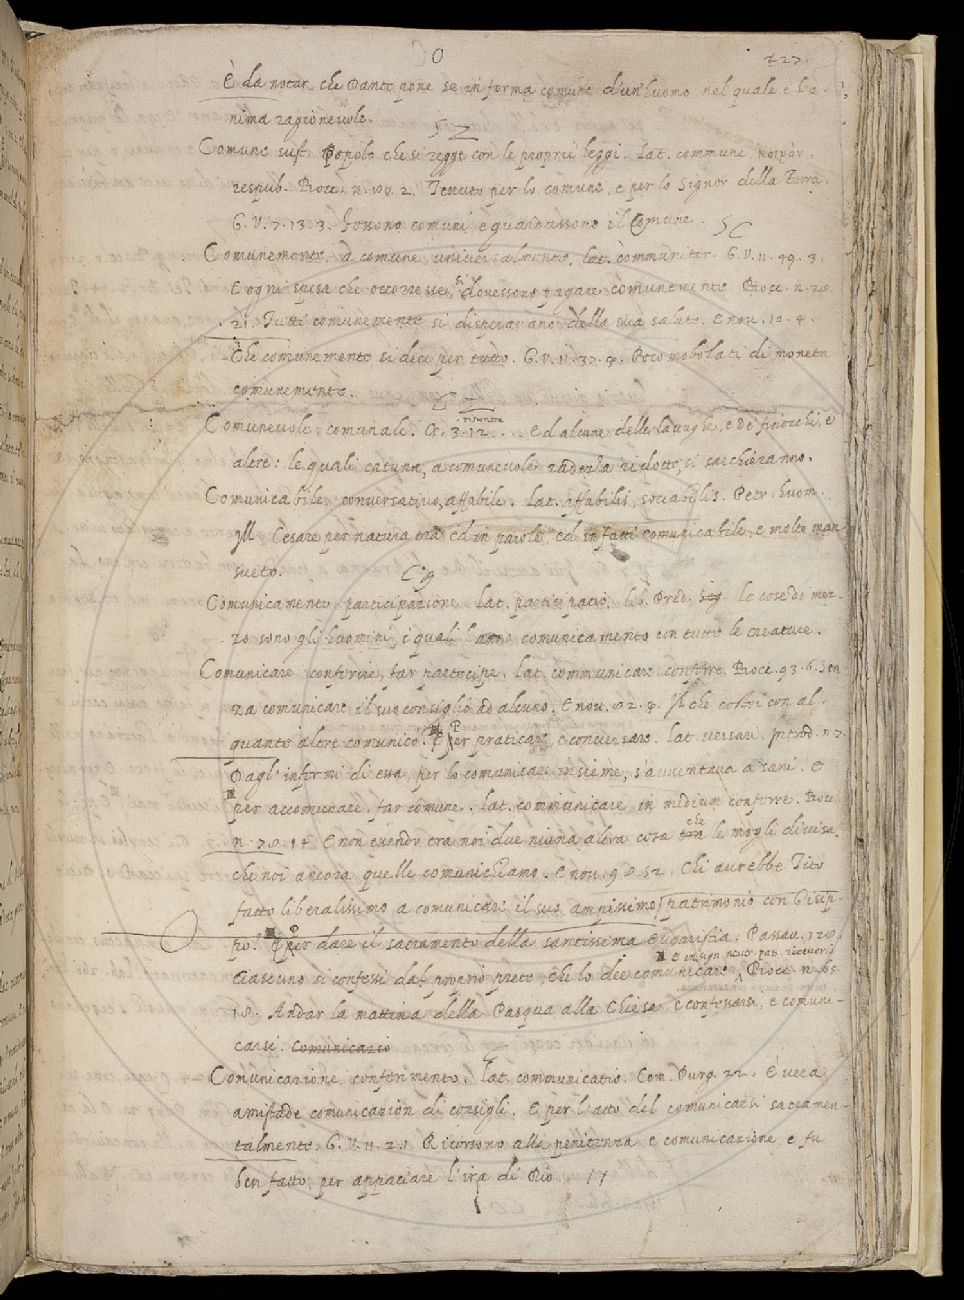 O 727
È da notar, che Dante pone se in forma comune d'un'huomo, nel quale è l'a-
nima ragioneuole.
Comune sust. Popolo, che si regge con le proprie leggi. Lat. commune κοινόν.
respub. Bocc. n. 2. Tenuto per lo comune, e per lo Signor della Terra.
G. V. 7. 13. 3. fossono comuni e guardassono il Comune.
Comunemente, a comune, uniuersalmente, lat. communiter. G. V. 11. 49. 3.
E ogni spesa che occorresse, si douessono pagare comunemente. Bocc. n.
21. Tutti comunemente si disperavano della sua salute. E nou. 10. 4.
Che comunemente si dice per tutto. G. V. 11. 37. 4. Poco mobolati di moneta
comunemente.
Comuneuole, comunale. Cr. 3. 12. E d'alcune delle lattughe, e de' finocchi, e
altre: le quali catuna, a comuneuole radezza ridotte, si sarchieranno.
Comunicabile conversativo, affabile. Lat. affabilis, sociabilis. Petr. huom.
ill. Cesare per natura era ed in parole, ed in fatti comunicabile, e molto man-
sueto.
Comunicamento participazione. Lat. participatio. lib. Pred. le cose di mez-
zo sono gli huomini, i quali hanno comunicamento con tutte le creature.
Comunicare conferire, far partecipe. lat. communicare conferre. Bocc. 93. 6. Sen
za comunicare il suo consiglio ad alcuno. E nou. 4. Il che costoi con al-
quante altre comunicò. Per praticare, e conversare. Lat. versari. Introd. n. 7.
Dagl'infermi di essa, per lo comunicare insieme, s'avventava a sani. E
per accomunare. far comune. lat. communicare in medium conferre. Bocc.
n. 14 E non essendo tra noi due niuna altra cosa che le mogli divisa,
che noi ancora quelle comunichiamo. E nou. 98. 52. Chi aurebbe Tito
fatto liberalissimo a comunicare il suo ampissimo patrimonio con Gisip-
po? Per dare il sacramento della santissima Eugaristia. Passau. 128.
E in sign. neut. pass. riceuerlo
Ciascuno si confessi dal proprio prete, che lo dee comunicare. Bocc. n. 65.
18. Andar la mattina della Pasqua alla Chiesa e confessarsi, e comuni-
carsi. Comunicarlo
Comunicazione, conferimento. Lat. communicatio. Com. Purg. 22. È vera
amistade comunicazion di consigli. E per l'atto del comunicarsi sacramen-
talmente. G. V. 11. 2. Ricorsono alla penitenza e comunicazione, e fu
ben fatto, per appaciare l'ira di Dio.